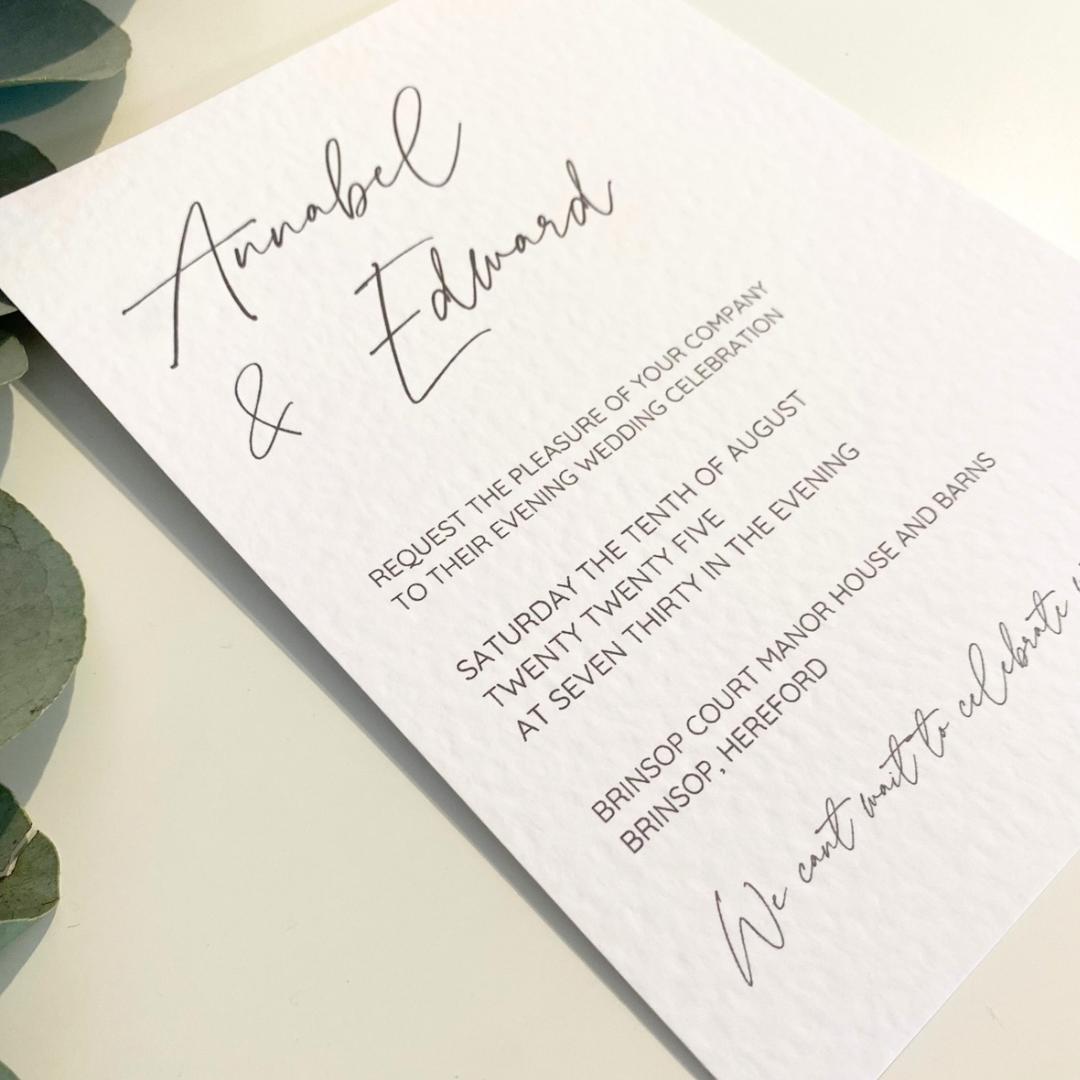 Annabel
& Edward
REQUEST THE PLEASURE OF YOUR COMPANY
TO THEIR EVENING WEDDING CELEBRATION
SATURDAY THE TENTH OF AUGUST
TWENTY TWENTY FIVE
AT SEVEN THIRTY IN THE EVENING
BRINSOP COURT MANOR HOUSE AND BARNS
BRINSOP, HEREFORD
We can't wait to celebrate